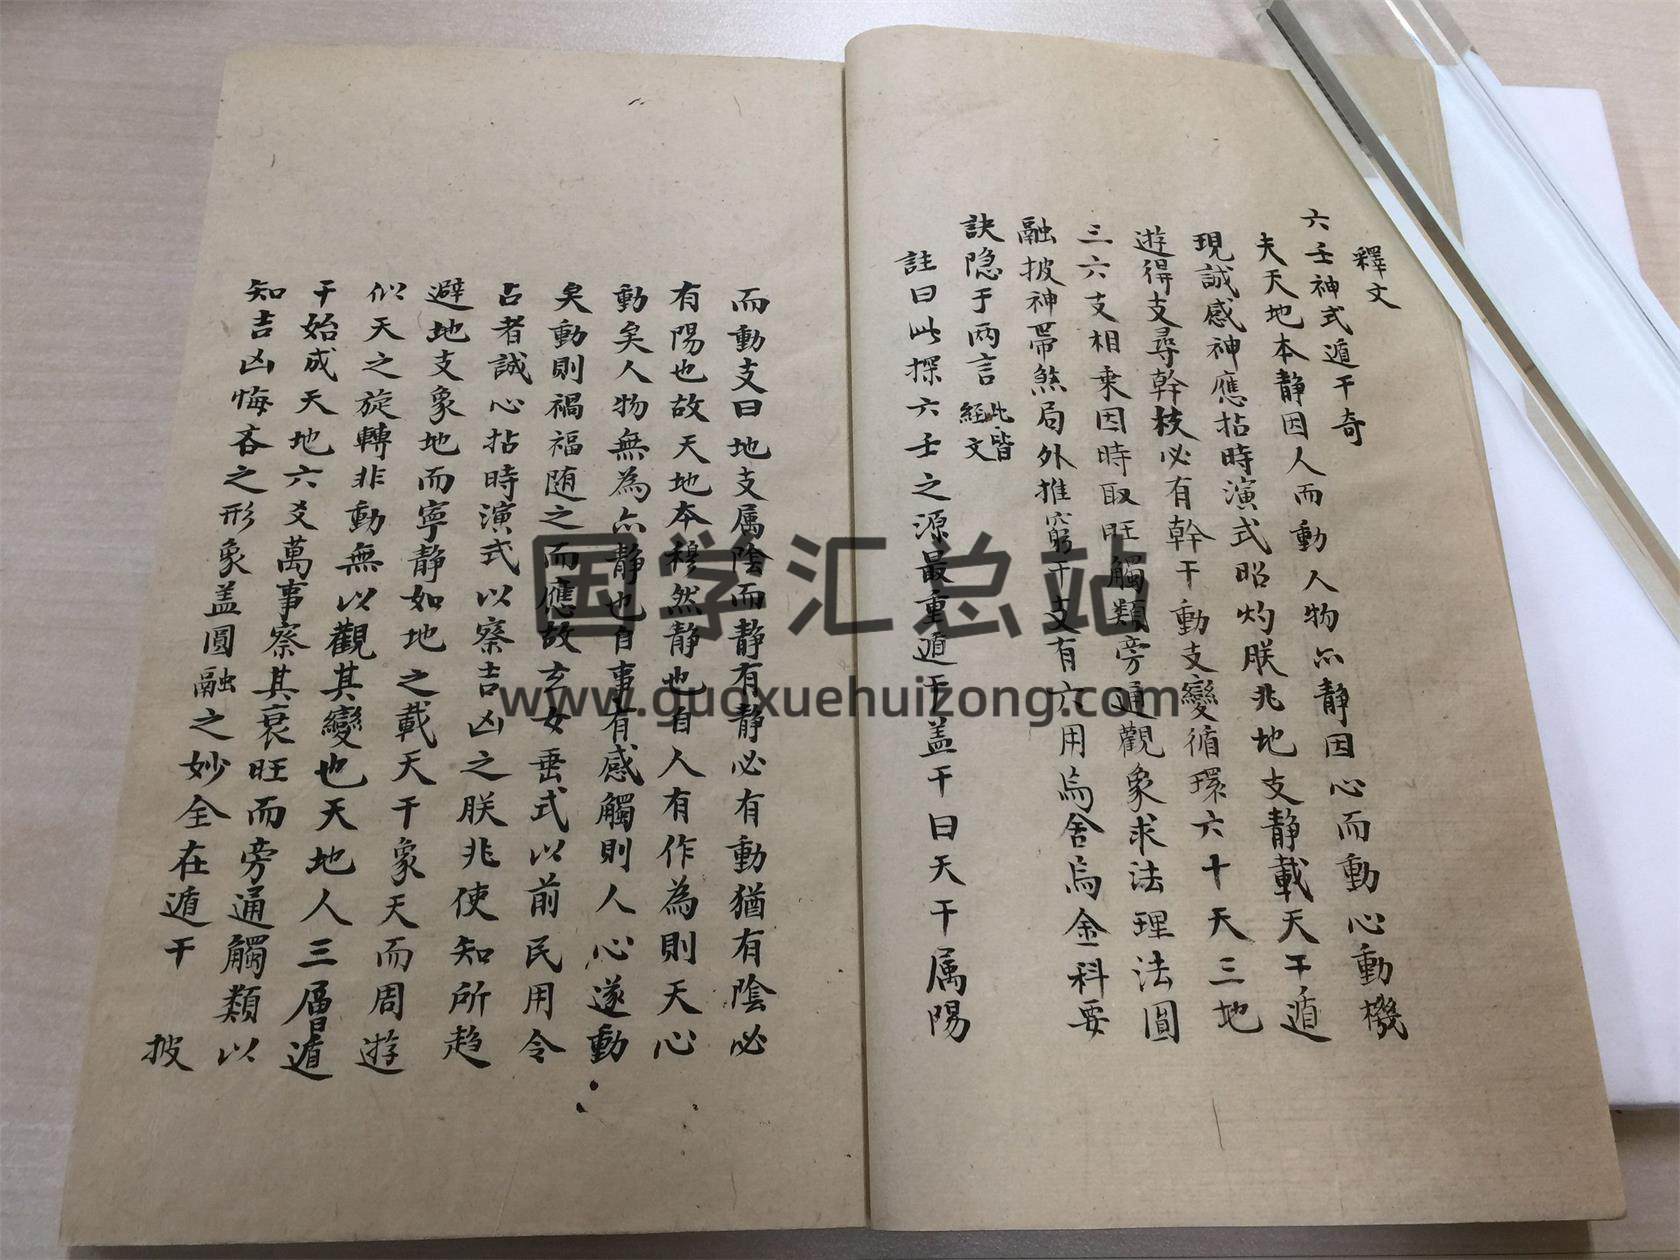 釋文
六壬神式遁干奇
夫天地本静因人而動人物亦静因心而動心動機
現誠感神應拈時演式昭灼朕兆地支静載天干遁
遊得支尋幹枝必有幹干動支變循環六十天三地
三六支相乗因時取旺觸類旁通觀象求法理法圓
融披神帶煞局外推窮干支有六用烏舍烏金科要
訣隐于两言
此皆
經文
註曰此探六壬之源最重遁干盖干曰天干属陽
而動支曰地支属陰而静有静必有動猶有陰必
有陽也故天地本穆然静也自人有作為則天心
動矣人物無為亦静也自事有感觸則人心遂動
矣動則禍福随之而應故玄女垂式以前民用令
占者誠心拈時演式以察吉凶之朕兆使知所趋
避地支象地而寧静如地之載天干象天而周遊
似天之旋轉非動無以觀其變也天地人三層遁
干始成天地六爻萬事察其衰旺而旁通觸類以
知吉凶悔吝之形象盖圓融之妙全在遁干 披
国学汇总站
www.guoxuehuizong.com